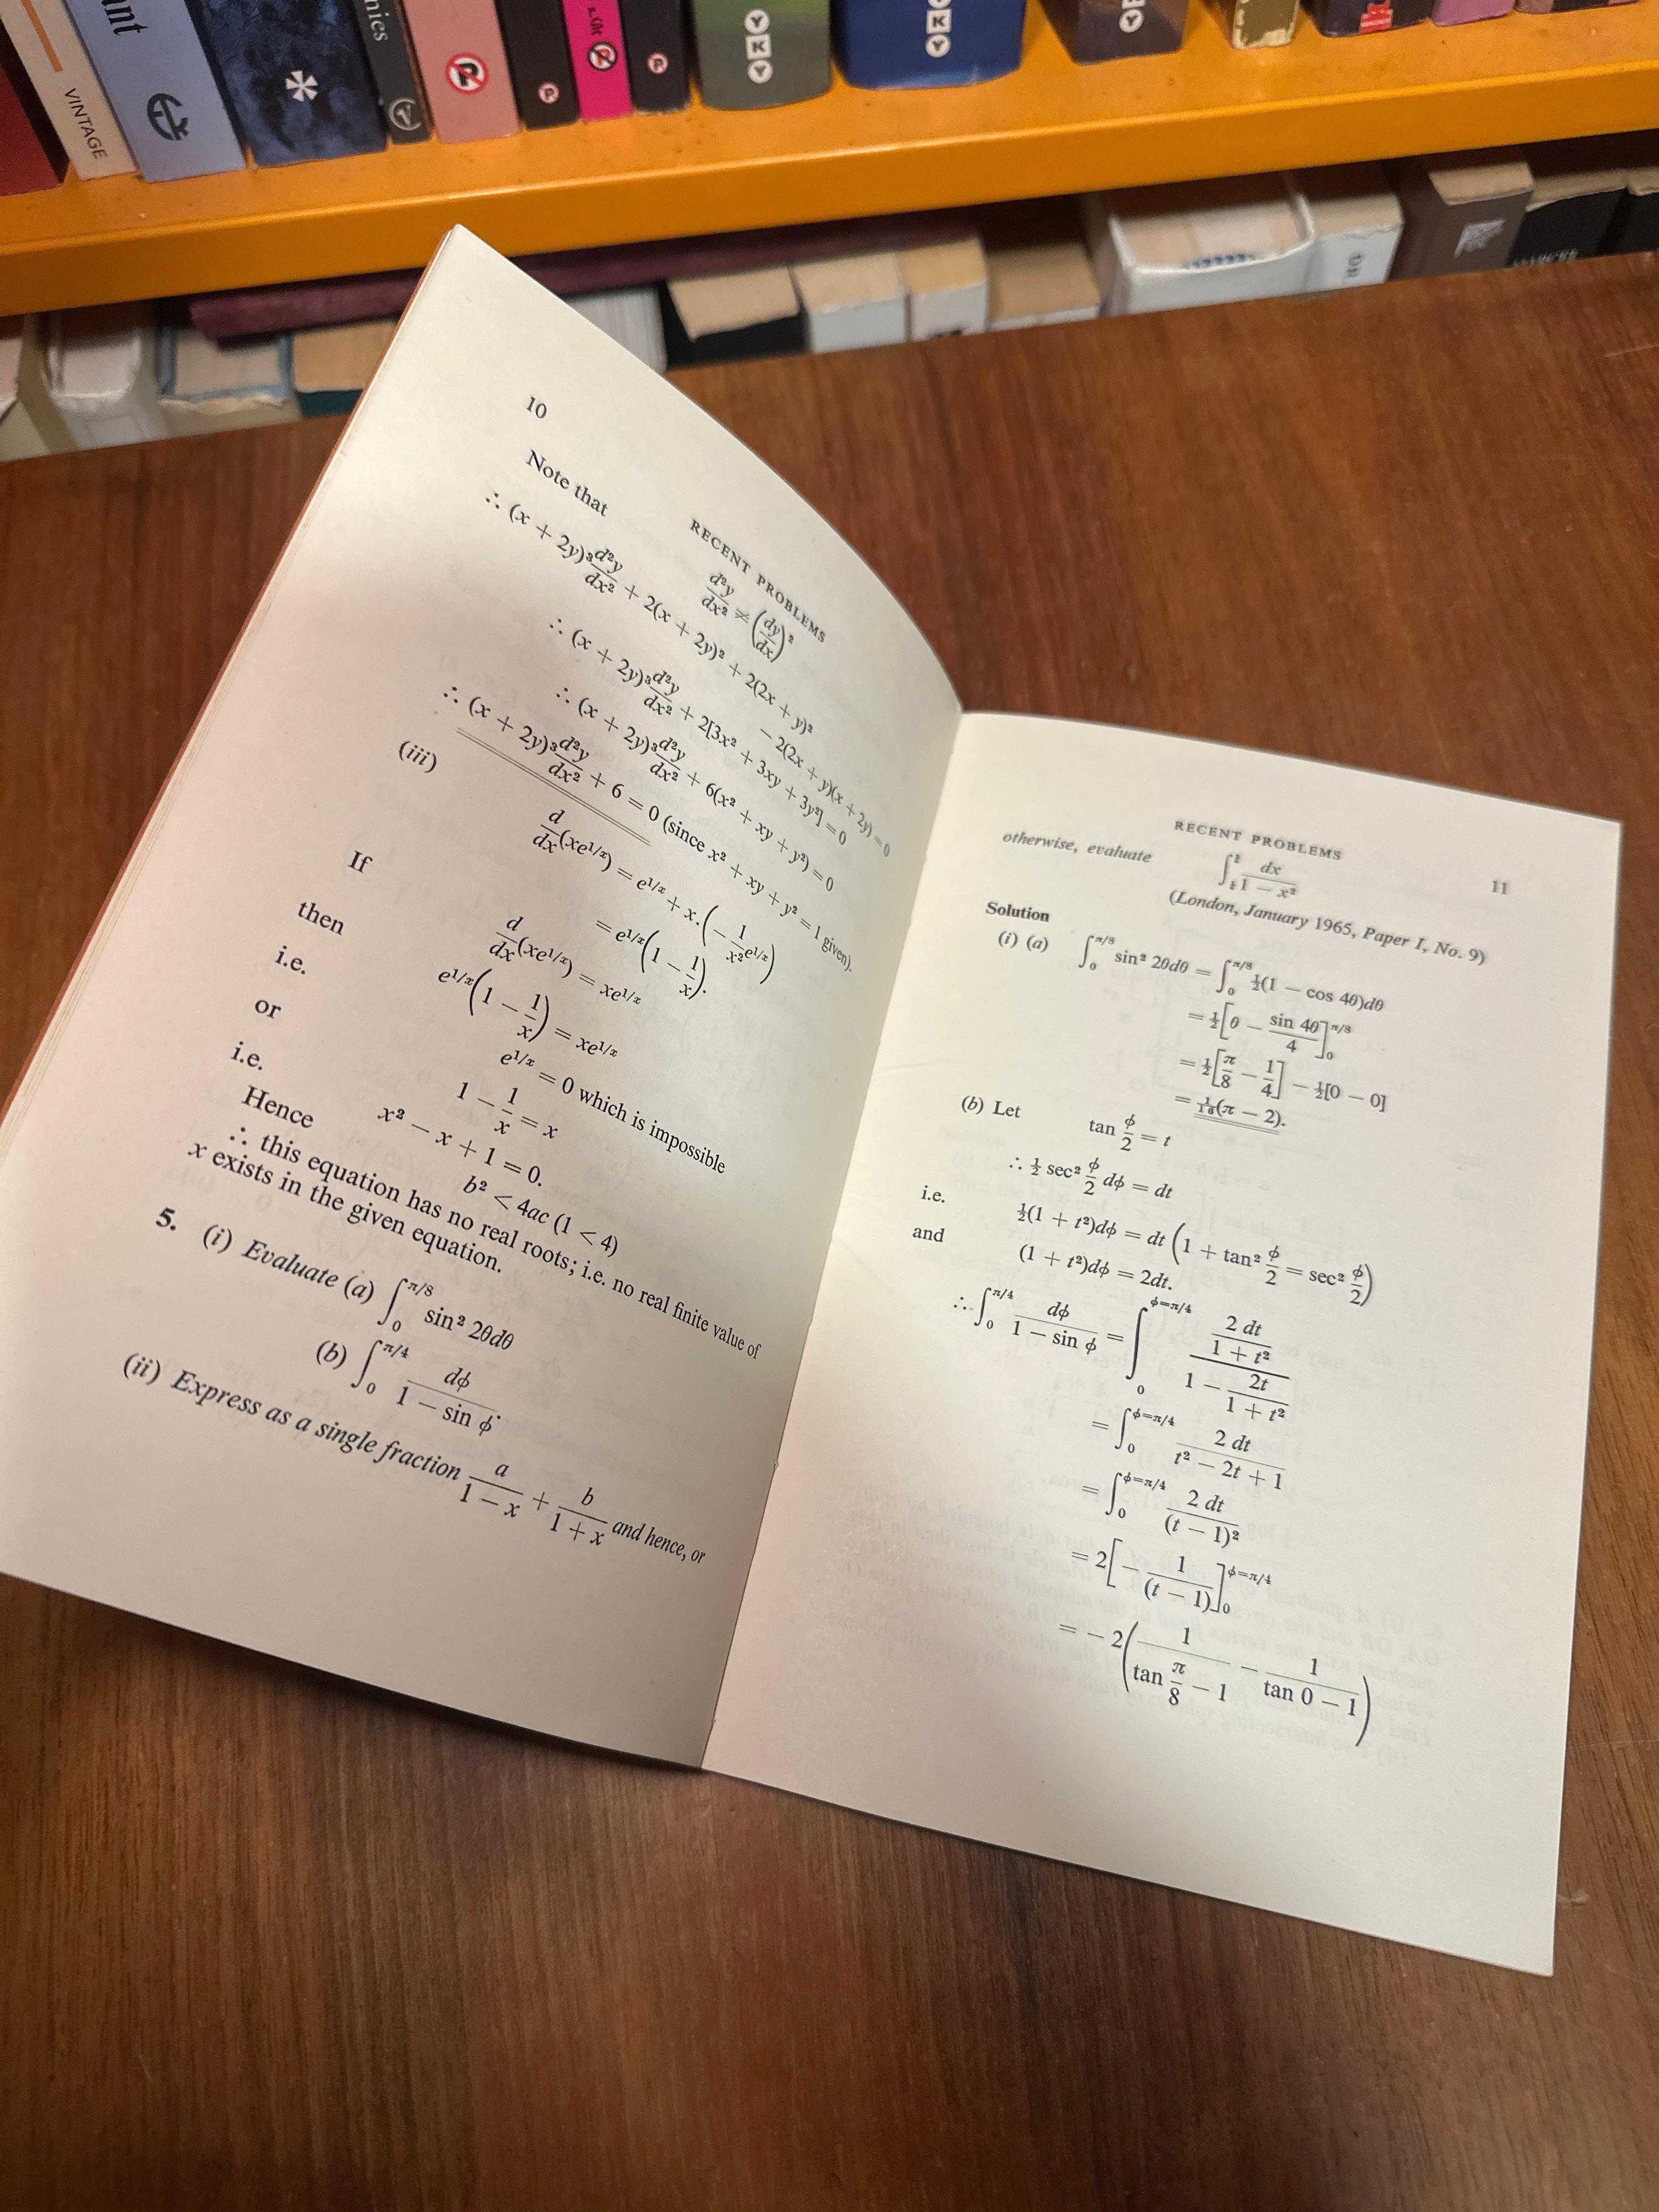 VINTAGE
10
RECENT PROBLEMS
Note that
d²y/dx² ≠ (dy/dx)²
∴ (x + 2y)³ d²y/dx² + 2(x + 2y)² + 2(2x + y)²
− 2(2x + y)(x + 2y) = 0
∴ (x + 2y)³ d²y/dx² + 2[3x² + 3xy + 3y²] = 0
∴ (x + 2y)³ d²y/dx² + 6(x² + xy + y²) = 0
∴ (x + 2y)³ d²y/dx² + 6 = 0 (since x² + xy + y² = 1 given).
(iii) d/dx(xe^{1/x}) = e^{1/x} + x.(− 1/x² e^{1/x})
= e^{1/x}(1 − 1/x).
If d/dx(xe^{1/x}) = xe^{1/x}
then e^{1/x}(1 − 1/x) = xe^{1/x}
i.e. e^{1/x} = 0 which is impossible
or 1 − 1/x = x
i.e. x² − x + 1 = 0.
Hence b² < 4ac (1 < 4)
∴ this equation has no real roots; i.e. no real finite value of
x exists in the given equation.
5. (i) Evaluate (a) ∫₀^{π/8} sin² 2θdθ
(b) ∫₀^{π/4} dφ/(1 − sin φ).
(ii) Express as a single fraction a/(1 − x) + b/(1 + x) and hence, or
RECENT PROBLEMS
11
otherwise, evaluate
dx/(1 − x²)
(London, January 1965, Paper I, No. 9)
Solution
(i) (a) ∫₀^{π/8} sin² 2θdθ = ∫₀^{π/8} ½(1 − cos 4θ)dθ
= ½[θ − sin 4θ/4]₀^{π/8}
= ½[π/8 − 1/4] − ½[0 − 0]
= 1/16(π − 2).
(b) Let tan φ/2 = t
∴ ½ sec² φ/2 dφ = dt
i.e. ½(1 + t²)dφ = dt (1 + tan² φ/2 = sec² φ/2)
and (1 + t²)dφ = 2dt.
∴ ∫₀^{π/4} dφ/(1 − sin φ) = ∫₀^{φ=π/4} (2 dt/(1 + t²))/(1 − 2t/(1 + t²))
= ∫₀^{φ=π/4} 2 dt/(t² − 2t + 1)
= ∫₀^{φ=π/4} 2 dt/(t − 1)²
= 2[− 1/(t − 1)]₀^{φ=π/4}
= − 2(1/(tan π/8 − 1) − 1/(tan 0 − 1))